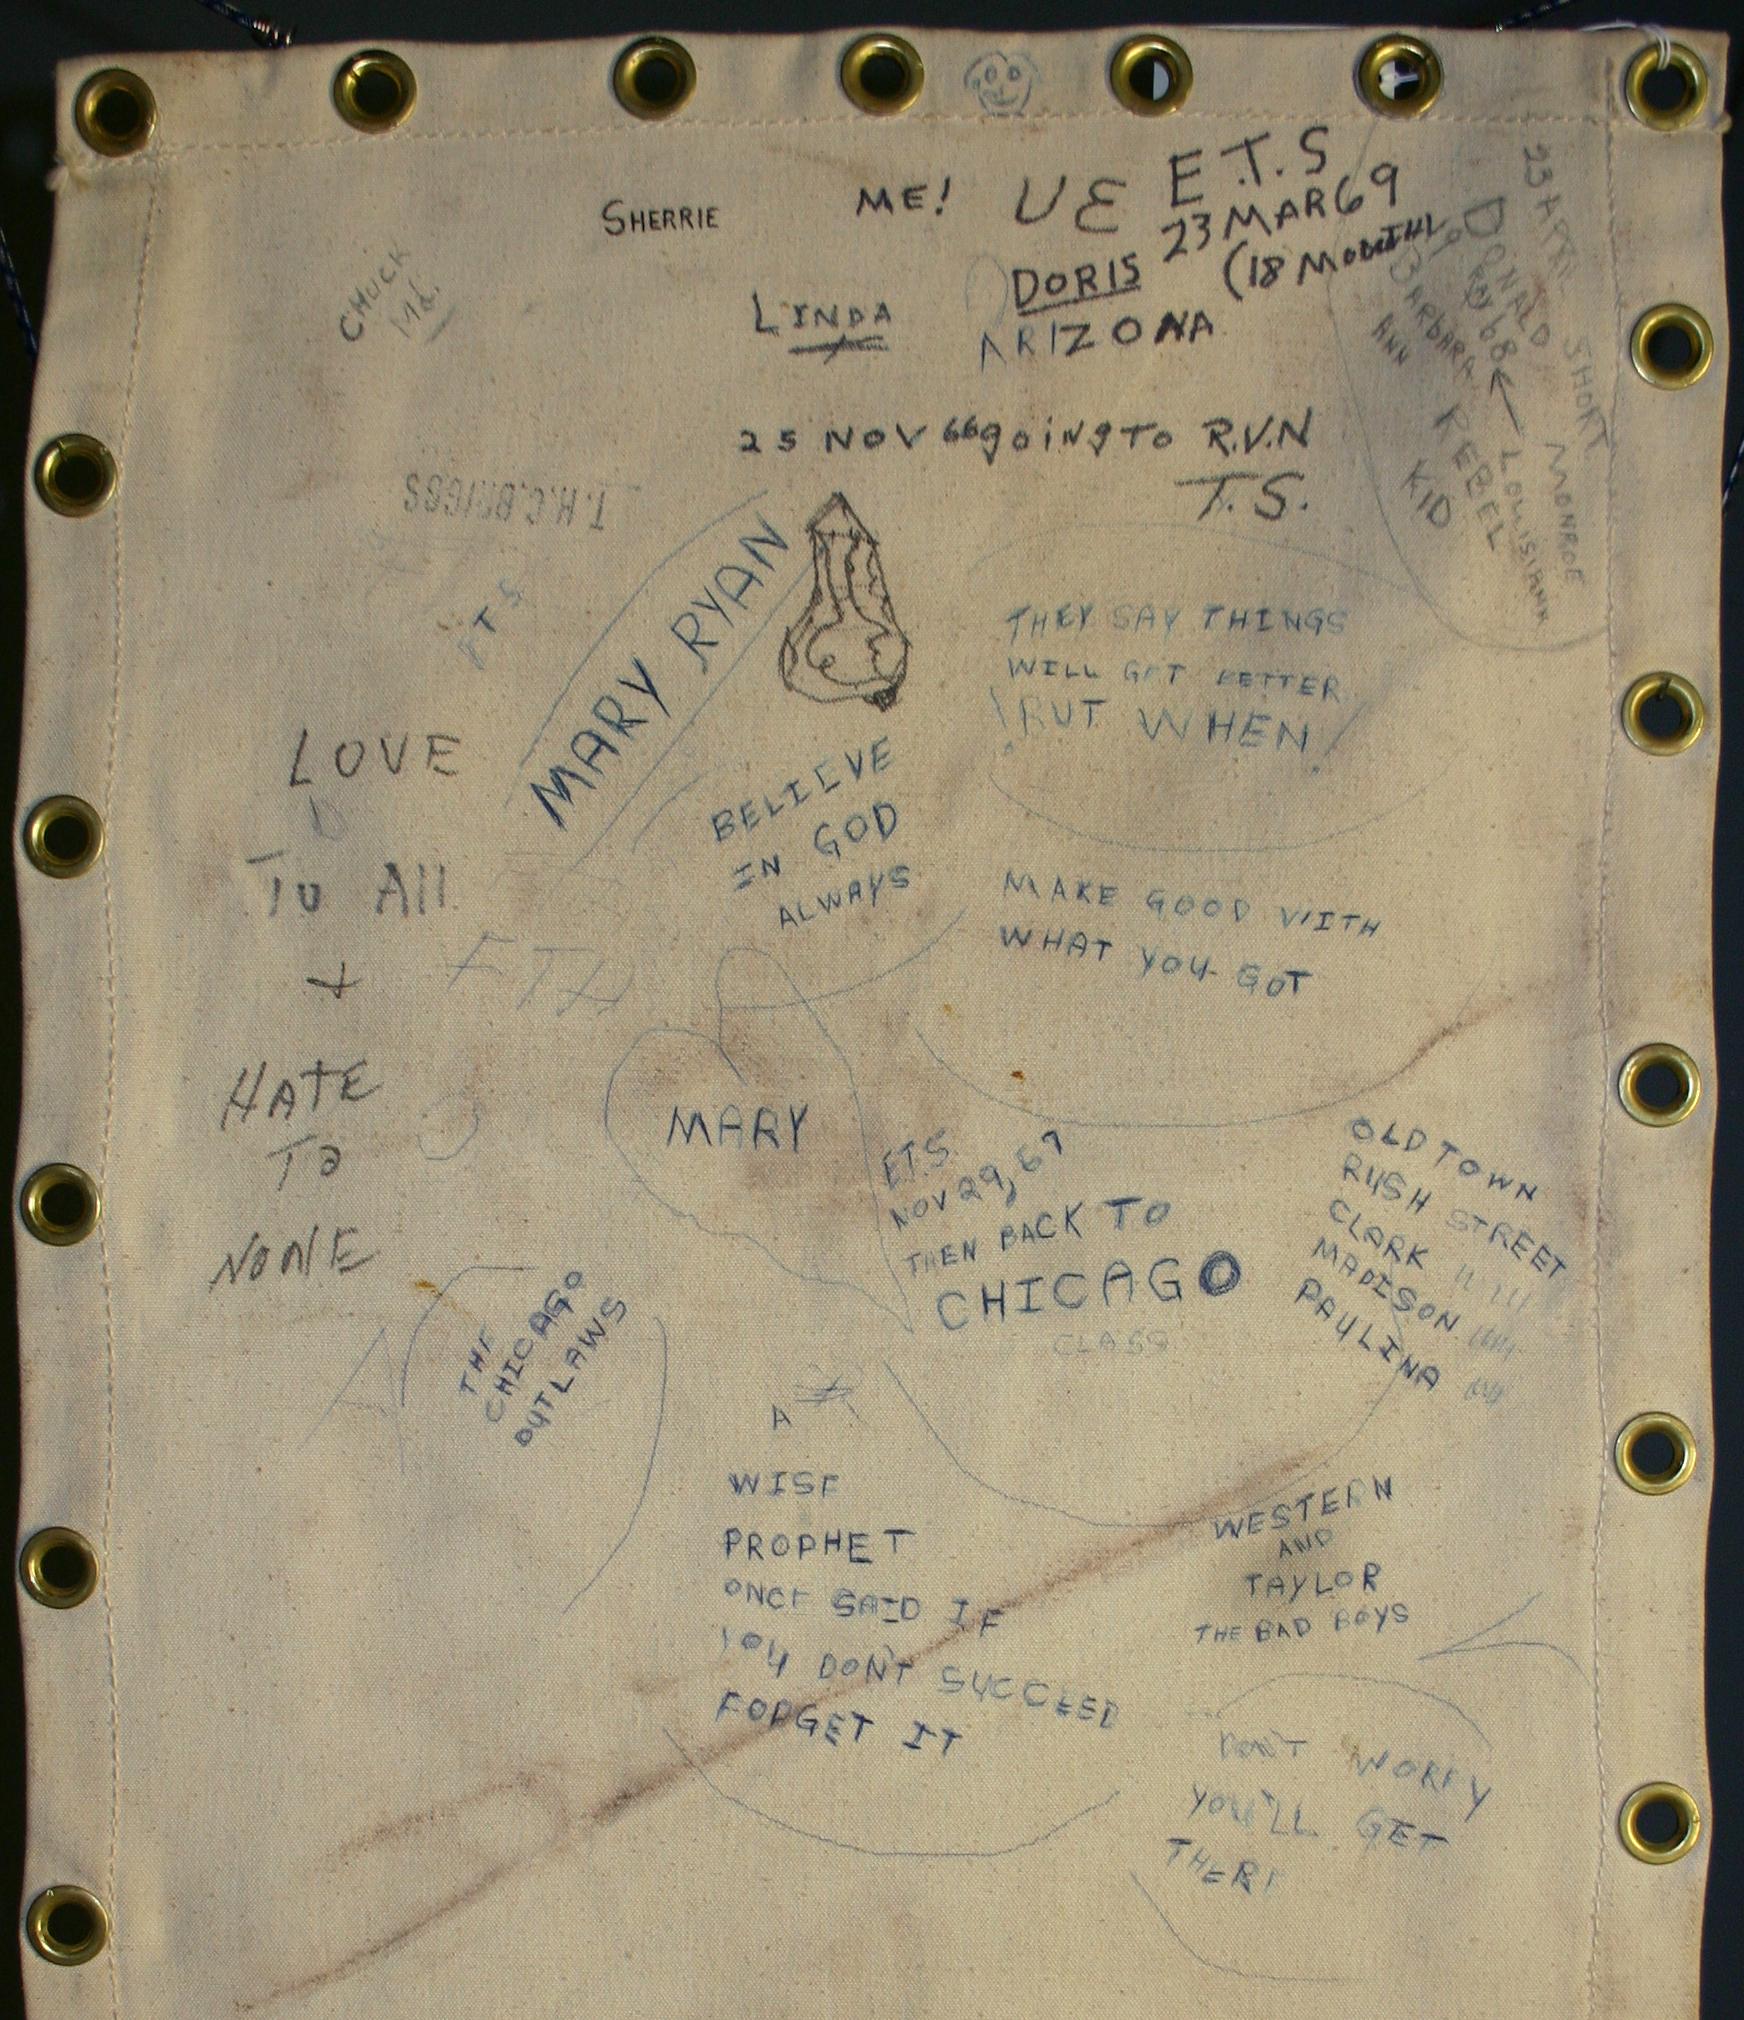 SHERRIE
ME!
UE
E.T.S
23 MAR 69
(18 MONTH
CHUCK
Md.
LINDA
DORIS
ARIZONA
23 APRIL
SHORT
DONALD
RAY 68
BARBARA
ANN
REBEL
KID
MONROE
LOUISIANA
25 NOV 66 going To R.V.N
T.S.
T.H.C. BRIGGS
MARY RYAN
THEY SAY THINGS
WILL GET BETTER
BUT WHEN
LOVE
To All
+
HATE
To
NONE
BELIEVE
IN GOD
ALWAYS
MAKE GOOD WITH
WHAT YOU GOT
FTA
MARY
E.T.S.
NOV 29, 67
THEN BACK TO
CHICAGO
CLASS
OLD TOWN
RUSH STREET
CLARK
MADISON
PAULINA
THE
CHICAGO
OUTLAWS
A
WISE
PROPHET
ONCE SAID IF
YOU DON'T SUCCEED
FORGET IT
WESTERN
AND
TAYLOR
THE BAD BOYS
DON'T WORRY
YOU'LL GET
THERE